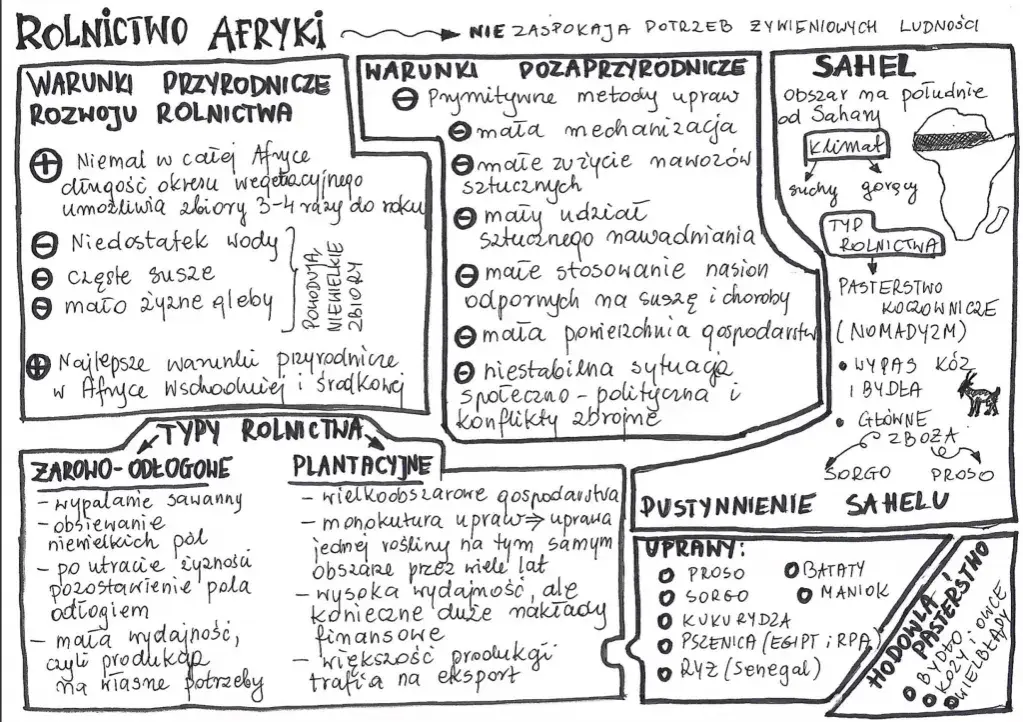 ROLNICTWO AFRYKI → NIE ZASPOKAJA POTRZEB ŻYWIENIOWYCH LUDNOŚCI
WARUNKI PRZYRODNICZE
ROZWOJU ROLNICTWA
⊕ Niemal w całej Afryce
długość okresu wegetacyjnego
umożliwia zbiory 3-4 razy do roku
⊖ Niedostatek wody
⊖ częste susze
⊖ mało żyzne gleby
POWODUJĄ
NIEWIELKIE
ZBIORY
⊕ Najlepsze warunki przyrodnicze
w Afryce Wschodniej i Środkowej
WARUNKI POZAPRZYRODNICZE
⊖ Prymitywne metody upraw
⊖ mała mechanizacja
⊖ małe zużycie nawozów
sztucznych
⊖ mały udział
sztucznego nawadniania
⊖ małe stosowanie nasion
odpornych na suszę i choroby
⊖ mała powierzchnia gospodarstw
⊖ niestabilna sytuacja
społeczno-polityczna i
konflikty zbrojne
SAHEL
obszar na południe
od Sahary
Klimat
suchy gorący
TYP
ROLNICTWA
PASTERSTWO
KOCZOWNICZE
(NOMADYZM)
• WYPAS KÓZ
I BYDŁA
• GŁÓWNE
ZBOŻA
SORGO PROSO
PUSTYNNIENIE SAHELU
TYPY ROLNICTWA
ŻAROWO-ODŁOGOWE
- wypalanie sawanny
- obsiewanie
niewielkich pól
- po utracie żyzności
pozostawienie pola
odłogiem
- mała wydajność,
czyli produkcja
na własne potrzeby
PLANTACYJNE
- wielkoobszarowe gospodarstwa
- monokutura upraw ⇒ uprawa
jednej rośliny na tym samym
obszarze przez wiele lat
- wysoka wydajność, ale
konieczne duże nakłady
finansowe
- większość produkcji
trafia na eksport
UPRAWY:
PROSO
SORGO
KUKURYDZA
PSZENICA (EGIPT i RPA)
RYŻ (Senegal)
BATATY
MANIOK
HODOWLA
PASTERSTWO
BYDŁO
KOZY i OWCE
WIELBŁĄDY